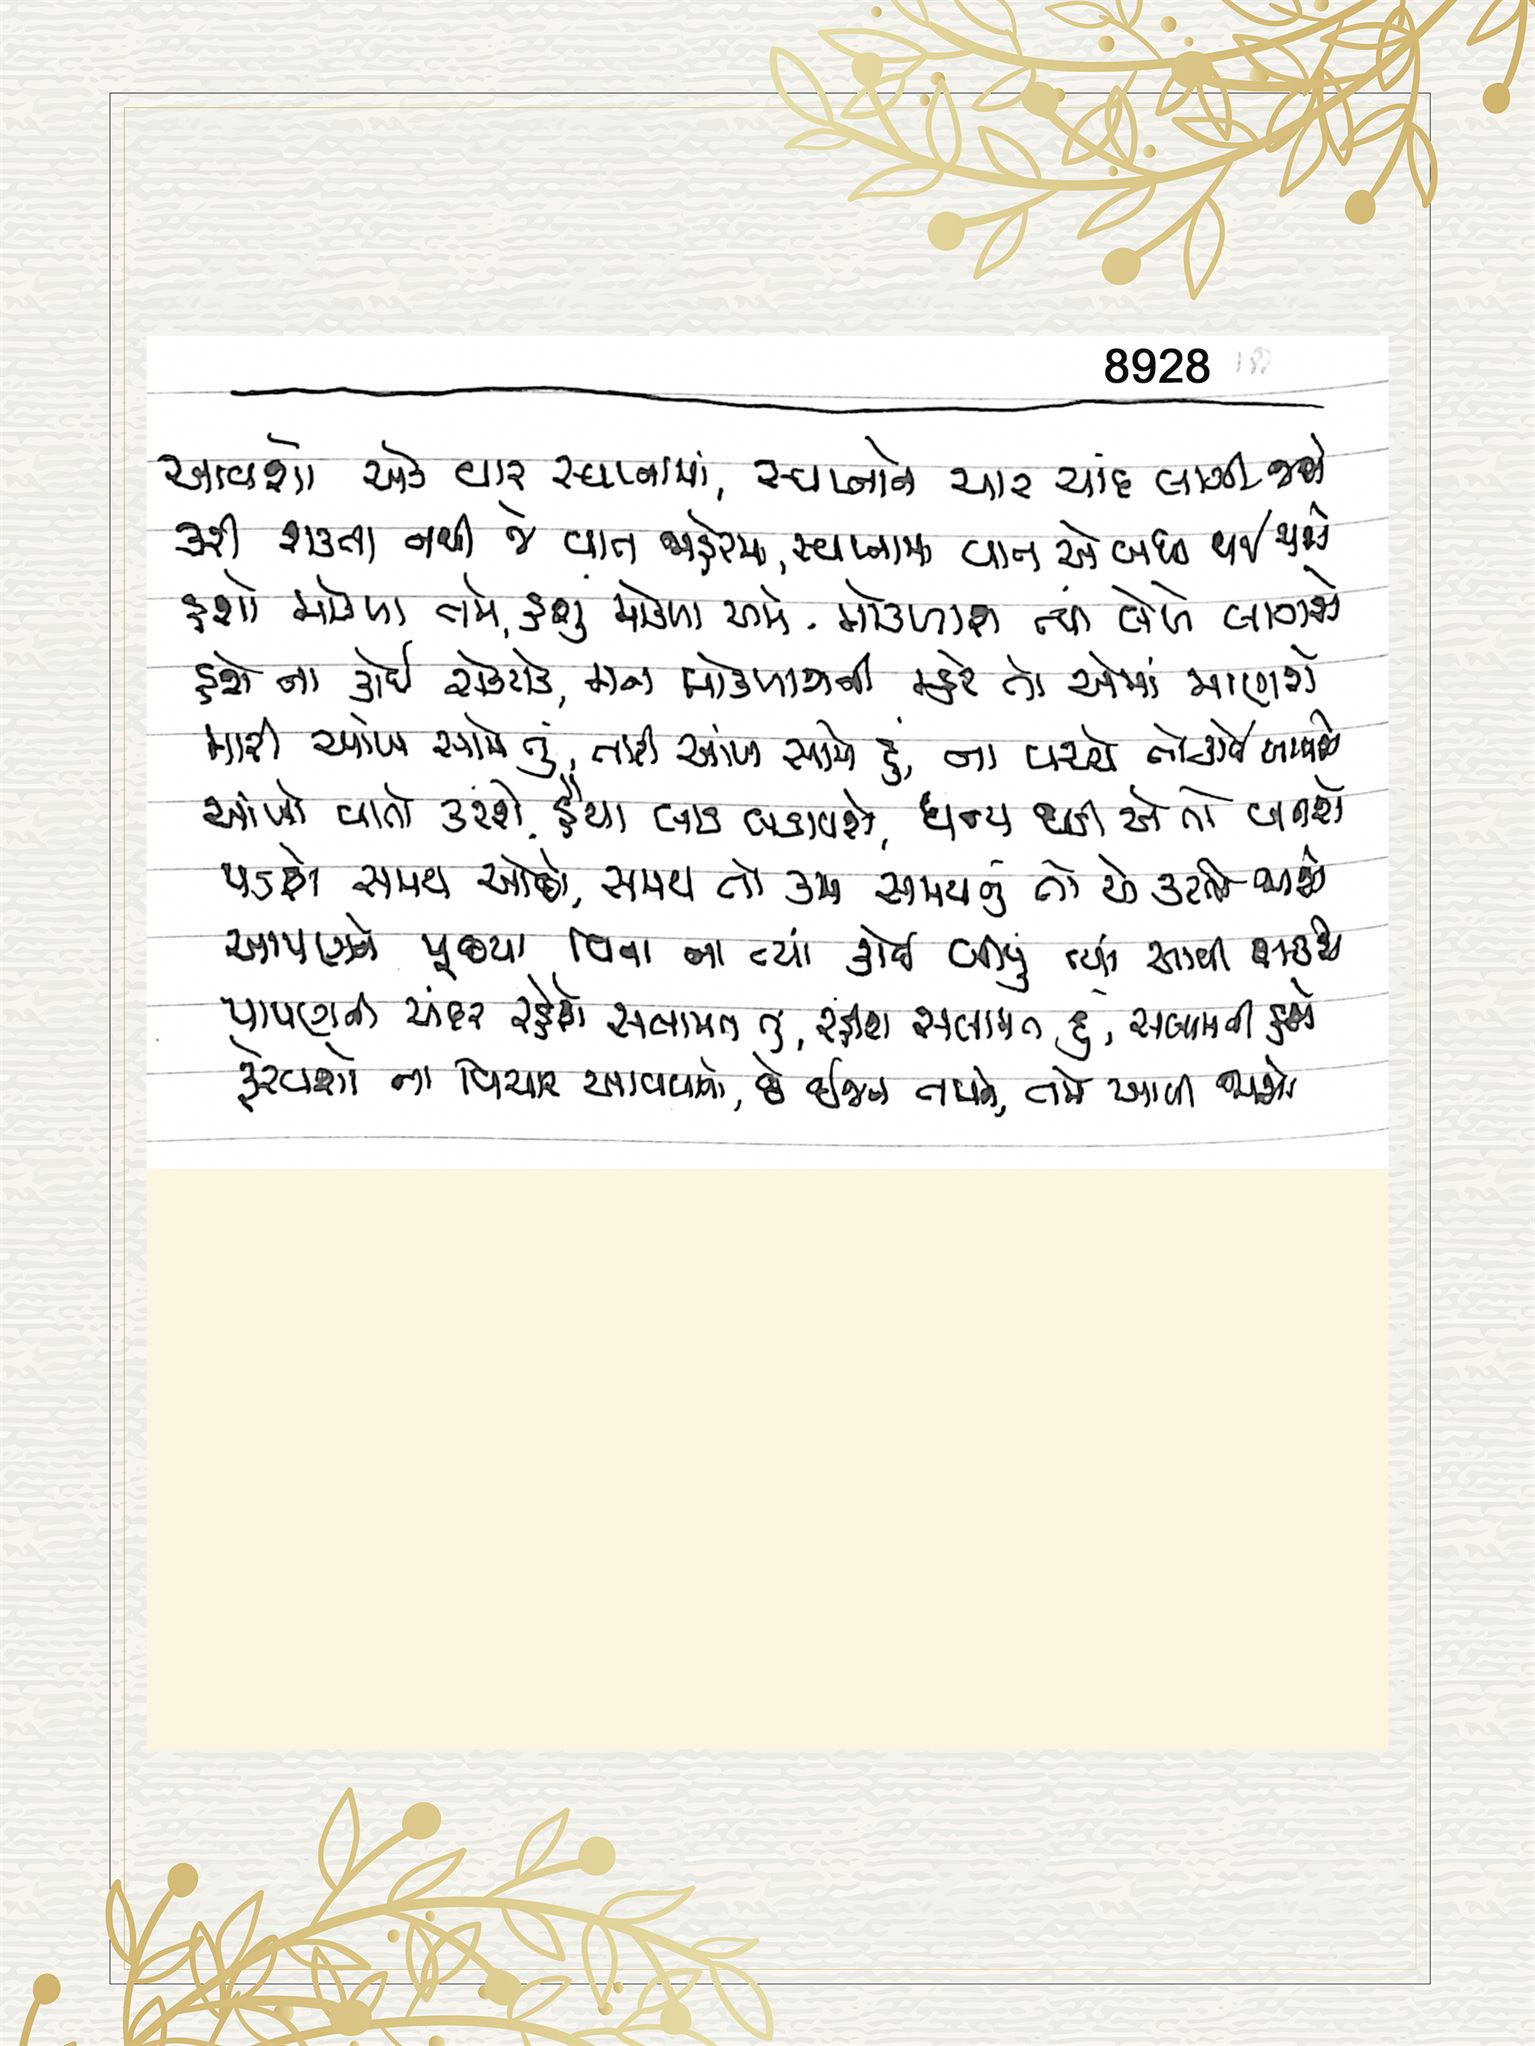 8928
આવશો એક વાર સ્વપ્નામાં, સ્વપ્નાને ચાર ચાંદ લાગી જશે
કરી શકતા નથી જે વાત જાહેરમાં, સ્વપ્નામાં વાત એ બધી થઈ જશે
હશો મોકળા તમે, હશું મોકળા અમે. મોકળાશ ત્યાં લેખે લાગશે
હશે ના કોઈ રોકટોક, મન મોકળાશની મહેર તો એમાં માણશે
મારી આંખ સામે તું, તારી આંખ સામે હું, ના વચ્ચે તો કોઈ આવશે
આંખો વાતો કરશે. હૈયા લાડ લડાવશે, ધન્ય ઘડી એ તો બનશે
પડશે સમય ઓછો, સમય તો કામ સમયનું તો એ કરતો જાશે
આપણને પૂછયા વિના ના ત્યાં કોઈ બીજું ત્યાં આવી શકશે
પાપણની અંદર રહેશે સલામત તું, રહીશ સલામત હું, સલામતી હશે
ફેરવશો ના વિચાર આવવાનો, છે ઈજન તમને, તમે આવી જાશો